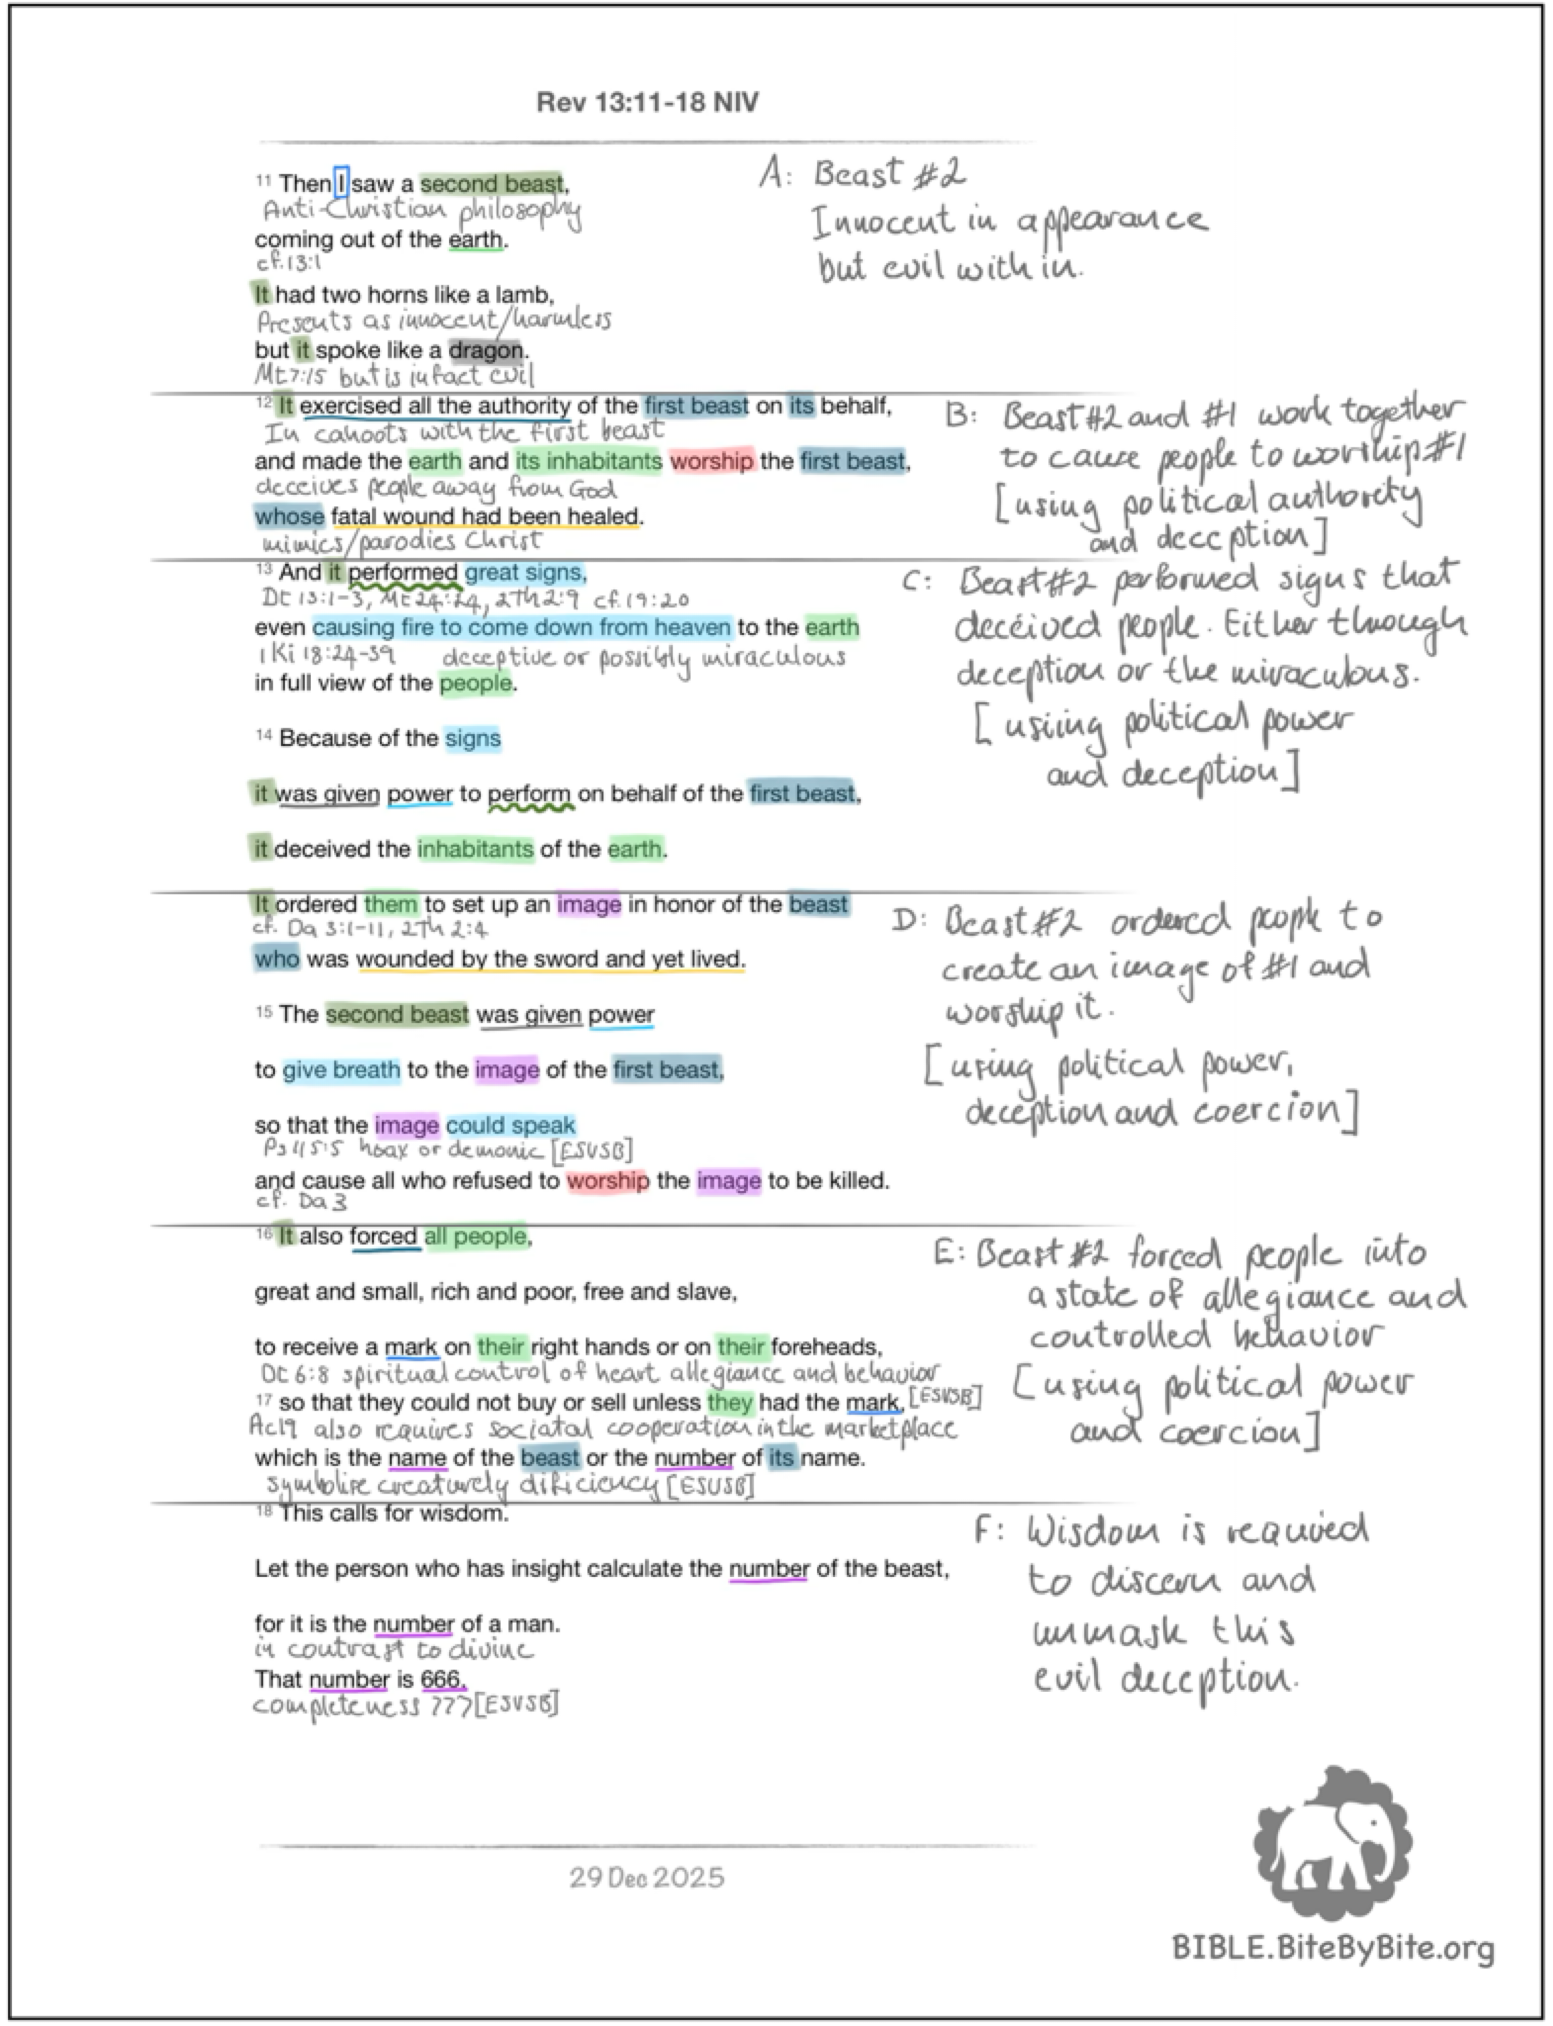 Rev 13:11-18 NIV
11 Then I saw a second beast,
Anti-Christian philosophy
coming out of the earth.
cf. 13:1
It had two horns like a lamb,
Presents as innocent/harmless
but it spoke like a dragon.
Mt 7:15 but is in fact evil
A: Beast #2
Innocent in appearance
but evil within.
12 It exercised all the authority of the first beast on its behalf,
In cahoots with the first beast
and made the earth and its inhabitants worship the first beast,
deceives people away from God
whose fatal wound had been healed.
mimics/parodies Christ
B: Beast #2 and #1 work together
to cause people to worship #1
[using political authority
and deception]
13 And it performed great signs,
Dt 13:1-3, Mt 24:24, 2Th 2:9 cf. 19:20
even causing fire to come down from heaven to the earth
1 Ki 18:24-39 deceptive or possibly miraculous
in full view of the people.
14 Because of the signs
it was given power to perform on behalf of the first beast,
it deceived the inhabitants of the earth.
C: Beast #2 performed signs that
deceived people. Either through
deception or the miraculous.
[usiing political power
and deception]
It ordered them to set up an image in honor of the beast
cf. Da 3:1-11, 2Th 2:4
who was wounded by the sword and yet lived.
15 The second beast was given power
to give breath to the image of the first beast,
so that the image could speak
Ps 115:5 hoax or demonic [ESVSB]
and cause all who refused to worship the image to be killed.
cf. Da 3
D: Beast #2 ordered people to
create an image of #1 and
worship it.
[using political power,
deception and coercion]
16 It also forced all people,
great and small, rich and poor, free and slave,
to receive a mark on their right hands or on their foreheads,
Dt 6:8 spiritual control of heart allegiance and behavior
17 so that they could not buy or sell unless they had the mark, [ESVSB]
Ac19 also requires sociatal cooperation in the marketplace
which is the name of the beast or the number of its name.
symbolize creaturely dificiency [ESVSB]
E: Beast #2 forced people into
a state of allegiance and
controlled behavior
[using political power
and coercion]
18 This calls for wisdom.
Let the person who has insight calculate the number of the beast,
for it is the number of a man.
in contrast to divine
That number is 666.
completeness 777 [ESVSB]
F: Wisdom is required
to discern and
unmask this
evil deception.
29 Dec 2025
BIBLE.BiteByBite.org